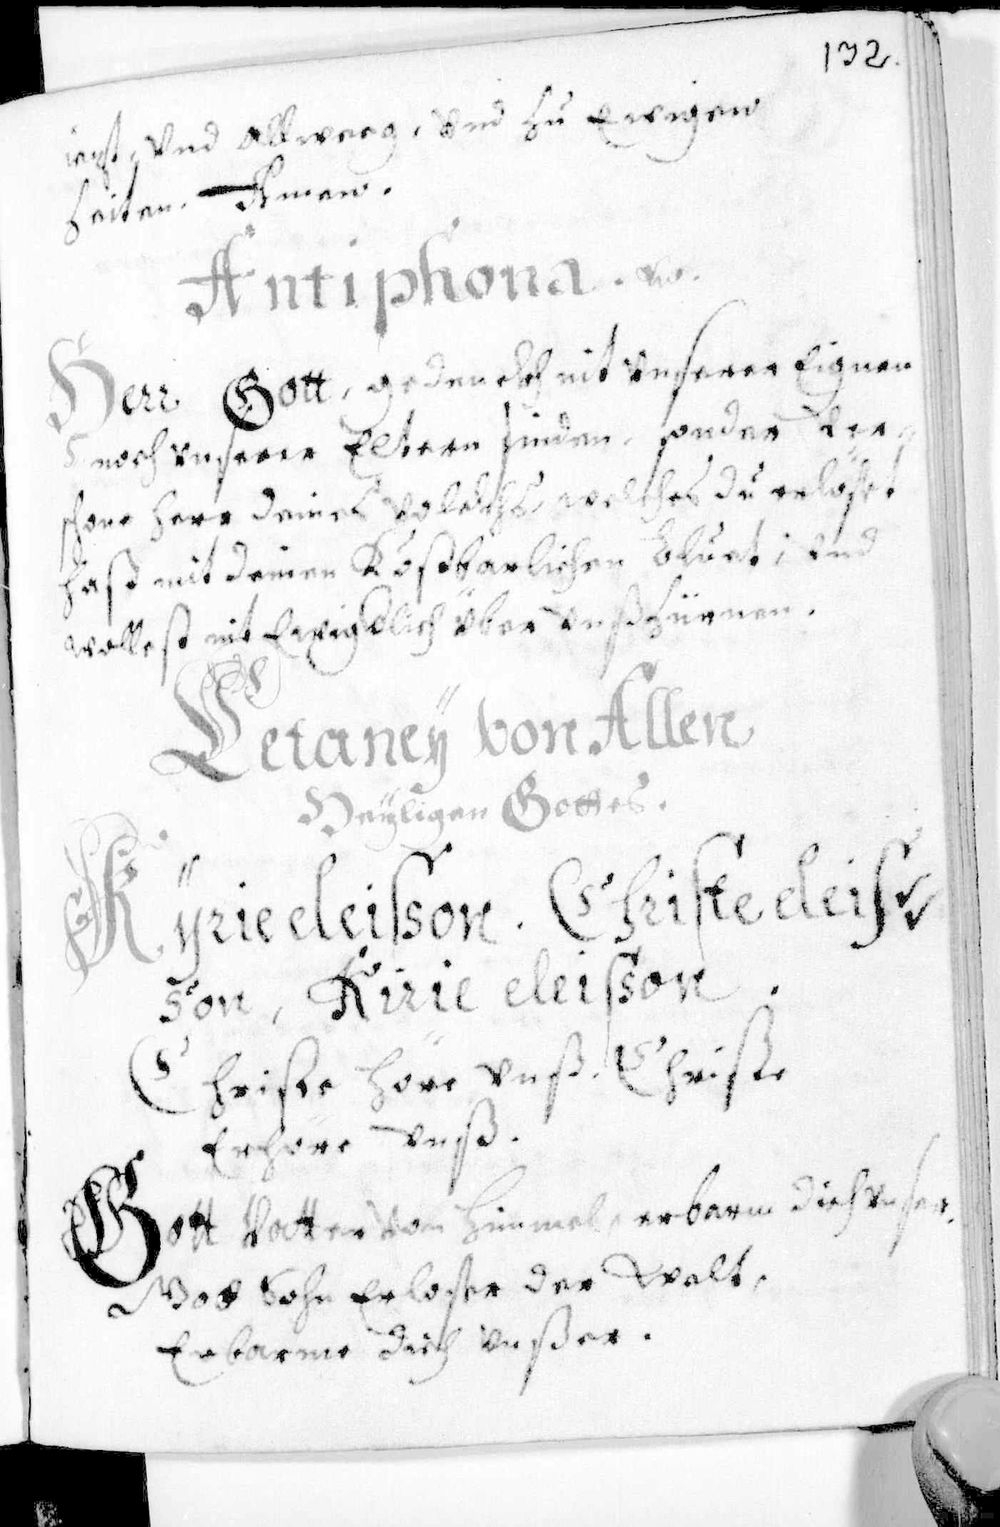 132.
iezt, Vnd Allweeg, Vnd zu Ewigen
Zeiten. Amen.
Antiphona.
Herr Gott, gedenckh nit Vnserer Eignen
noch Vnserer Eltern sinden, sonder Ver,
schone herr deines Volckhs, welches du erlöset
hast mit deinen Kostbarlichen bluet, Vnd
wollest nit Ewigklich über Vnß zürnen.
Letaneÿ von Allen
Heÿligen Gottes.
Kÿrie eleisson. Christe eleis,
son, Kirie eleisson.
Christe höre Vnß. Christe
Erhöre Vnß.
Gott Vatter von himmel, erbarm dich Vnser.
Gott Sohn Erloser der Welt,
Erbarme dich Vnßer.